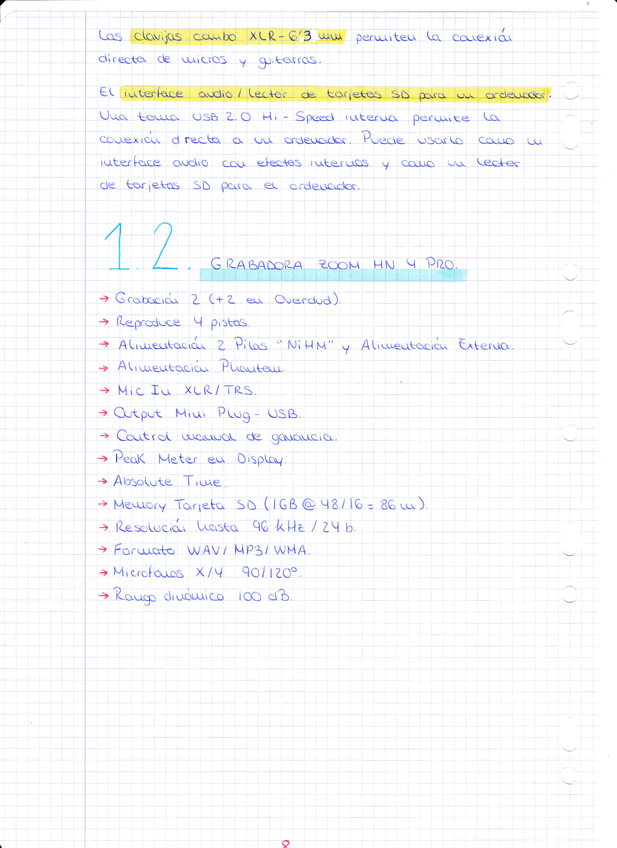 Las clavijas combo XLR-6'3 mm permiten la conexión
directa de micros y guitarras.
El interface audio/Lector de tarjetas SD para un ordenador.
Una toma USB 2.0 Hi-Speed interna permite la
conexión directa a un ordenador. Puede usarlo como un
interface audio con efectos internos y como un lector
de tarjetas SD para el ordenador.
1.2. GRABADORA ZOOM HN 4 PRO.
→ Grabación 2 (+2 en Overdud).
→ Reproduce 4 pistas.
→ Alimentación 2 Pilas "NiHM" y Alimentación Externa.
→ Alimentación Phantom.
→ Mic In XLR/TRS.
→ Output Mini Plug-USB.
→ Control manual de ganancia.
→ Peak Meter en Display.
→ Absolute Time.
→ Memory Tarjeta SD (1GB @ 48/16 = 86 m).
→ Resolución hasta 96 kHz / 24 b.
→ Formato WAV/MP3/WMA.
→ Micrófonos X/Y 90/120º.
→ Rango dinámico 100 dB.
8